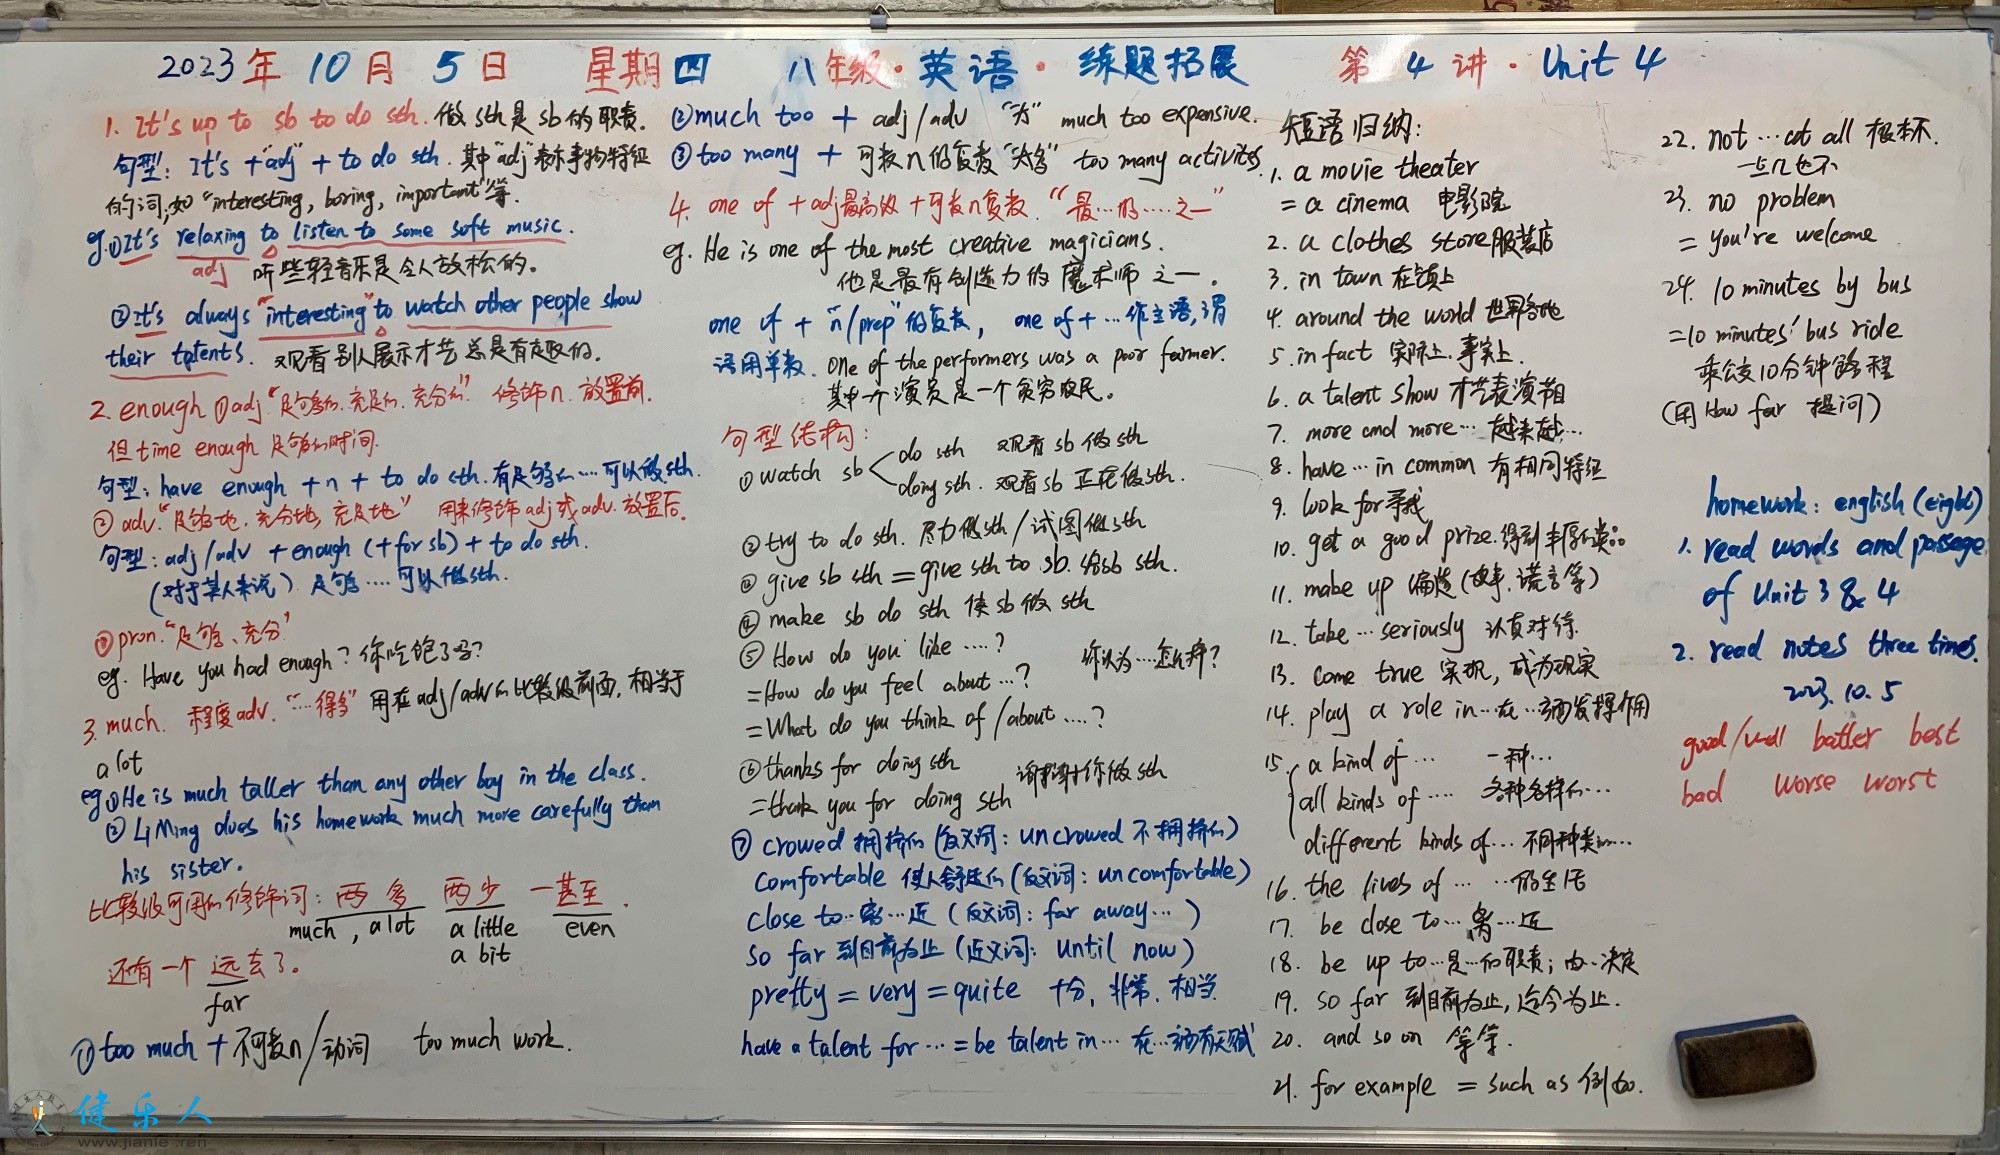 2023年 10月 5日 星期四 八年级·英语·练题拓展 第 4 讲·Unit 4
1. It's up to sb to do sth. 做sth是sb的职责.
句型: It's + "adj" + to do sth. 其中"adj"表示事物特征
的词,如"interesting, boring, important"等.
eg.①It's relaxing to listen to some soft music.
adj 听些轻音乐是令人放松的。
②It's always "interesting" to watch other people show
their talents. 观看别人展示才艺总是有趣的.
2. enough ①adj."足够的.充足的.充分的" 修饰n. 放置前.
但time enough 足够的时间.
句型: have enough + n + to do sth. 有足够的……可以做sth.
② adv."足够地.充分地,充足地" 用来修饰adj或adv. 放置后.
句型: adj/adv + enough (+for sb) + to do sth.
(对于某人来说) 足够……可以做sth.
③pron."足够、充分"
eg. Have you had enough? 你吃饱了吗?
3. much. 程度adv. "…得多" 用在adj/adv的比较级前面, 相当于
a lot
eg ①He is much taller than any other boy in the class.
② Li Ming does his homework much more carefully than
his sister.
比较级可用的修饰词: 两多 两少 一甚至.
much , a lot a little even
a bit
还有一个 远去了。
far
① too much + 不可数n/动词 too much work.
②much too + adj/adv "太" much too expensive.
③ too many + 可数n的复数 "太多" too many activites.
4. one of + adj最高级 + 可数n复数. "最…的……之一"
eg. He is one of the most creative magicians.
他是最有创造力的魔术师之一.
one of + "n/prep"的复数, one of + …作主语,谓
语用单数. One of the performers was a poor farmer.
其中一个演员是一个贫穷农民。
句型结构:
① watch sb do sth 观看sb做sth
doing sth. 观看sb正在做sth.
② try to do sth. 尽力做sth/试图做sth
③ give sb sth = give sth to sb. 给sb sth.
④ make sb do sth 使sb做sth
⑤ How do you like ....?
=How do you feel about ...? 你认为…怎么样?
=What do you think of /about ....?
⑥ thanks for doing sth 谢谢你做sth
=thank you for doing sth
⑦ crowed 拥挤的(反义词: uncrowed 不拥挤的)
comfortable 使人舒适的(反义词: uncomfortable)
close to… 离…近 (反义词: far away… )
so far 到目前为止 (近义词: until now)
pretty = very = quite 十分, 非常. 相当
have a talent for … = be talent in… 在…方面有天赋
短语归纳:
1. a movie theater
= a cinema 电影院
2. a clothes store 服装店
3. in town 在镇上
4. around the world 世界各地
5. in fact 实际上.事实上.
6. a talent show 才艺表演节目
7. more and more … 越来越…
8. have … in common 有相同特征
9. look for 寻找
10. get a good prize. 得到丰厚的奖品
11. make up 编造(故事.谎言等)
12. take … seriously 认真对待.
13. come true 实现, 成为现实
14. play a role in … 在…方面发挥作用
15. a kind of … 一种…
all kinds of …. 各种各样的…
different kinds of … 不同种类的…
16. the lives of … …的生活
17. be close to … 离…近
18. be up to … 是…的职责; 由…决定
19. so far 到目前为止, 迄今为止.
20. and so on 等等.
21. for example = such as 例如.
22. not … at all 根本不.
一点儿也不
23. no problem
= you're welcome
24. 10 minutes by bus
=10 minutes' bus ride
乘公交10分钟路程
(用 How far 提问)
homework: english (eight)
1. read words and passage
of Unit 3 & 4
2. read notes three times.
2023. 10. 5
good/well batler best
bad worse worst
健乐人
www.jianle.ren